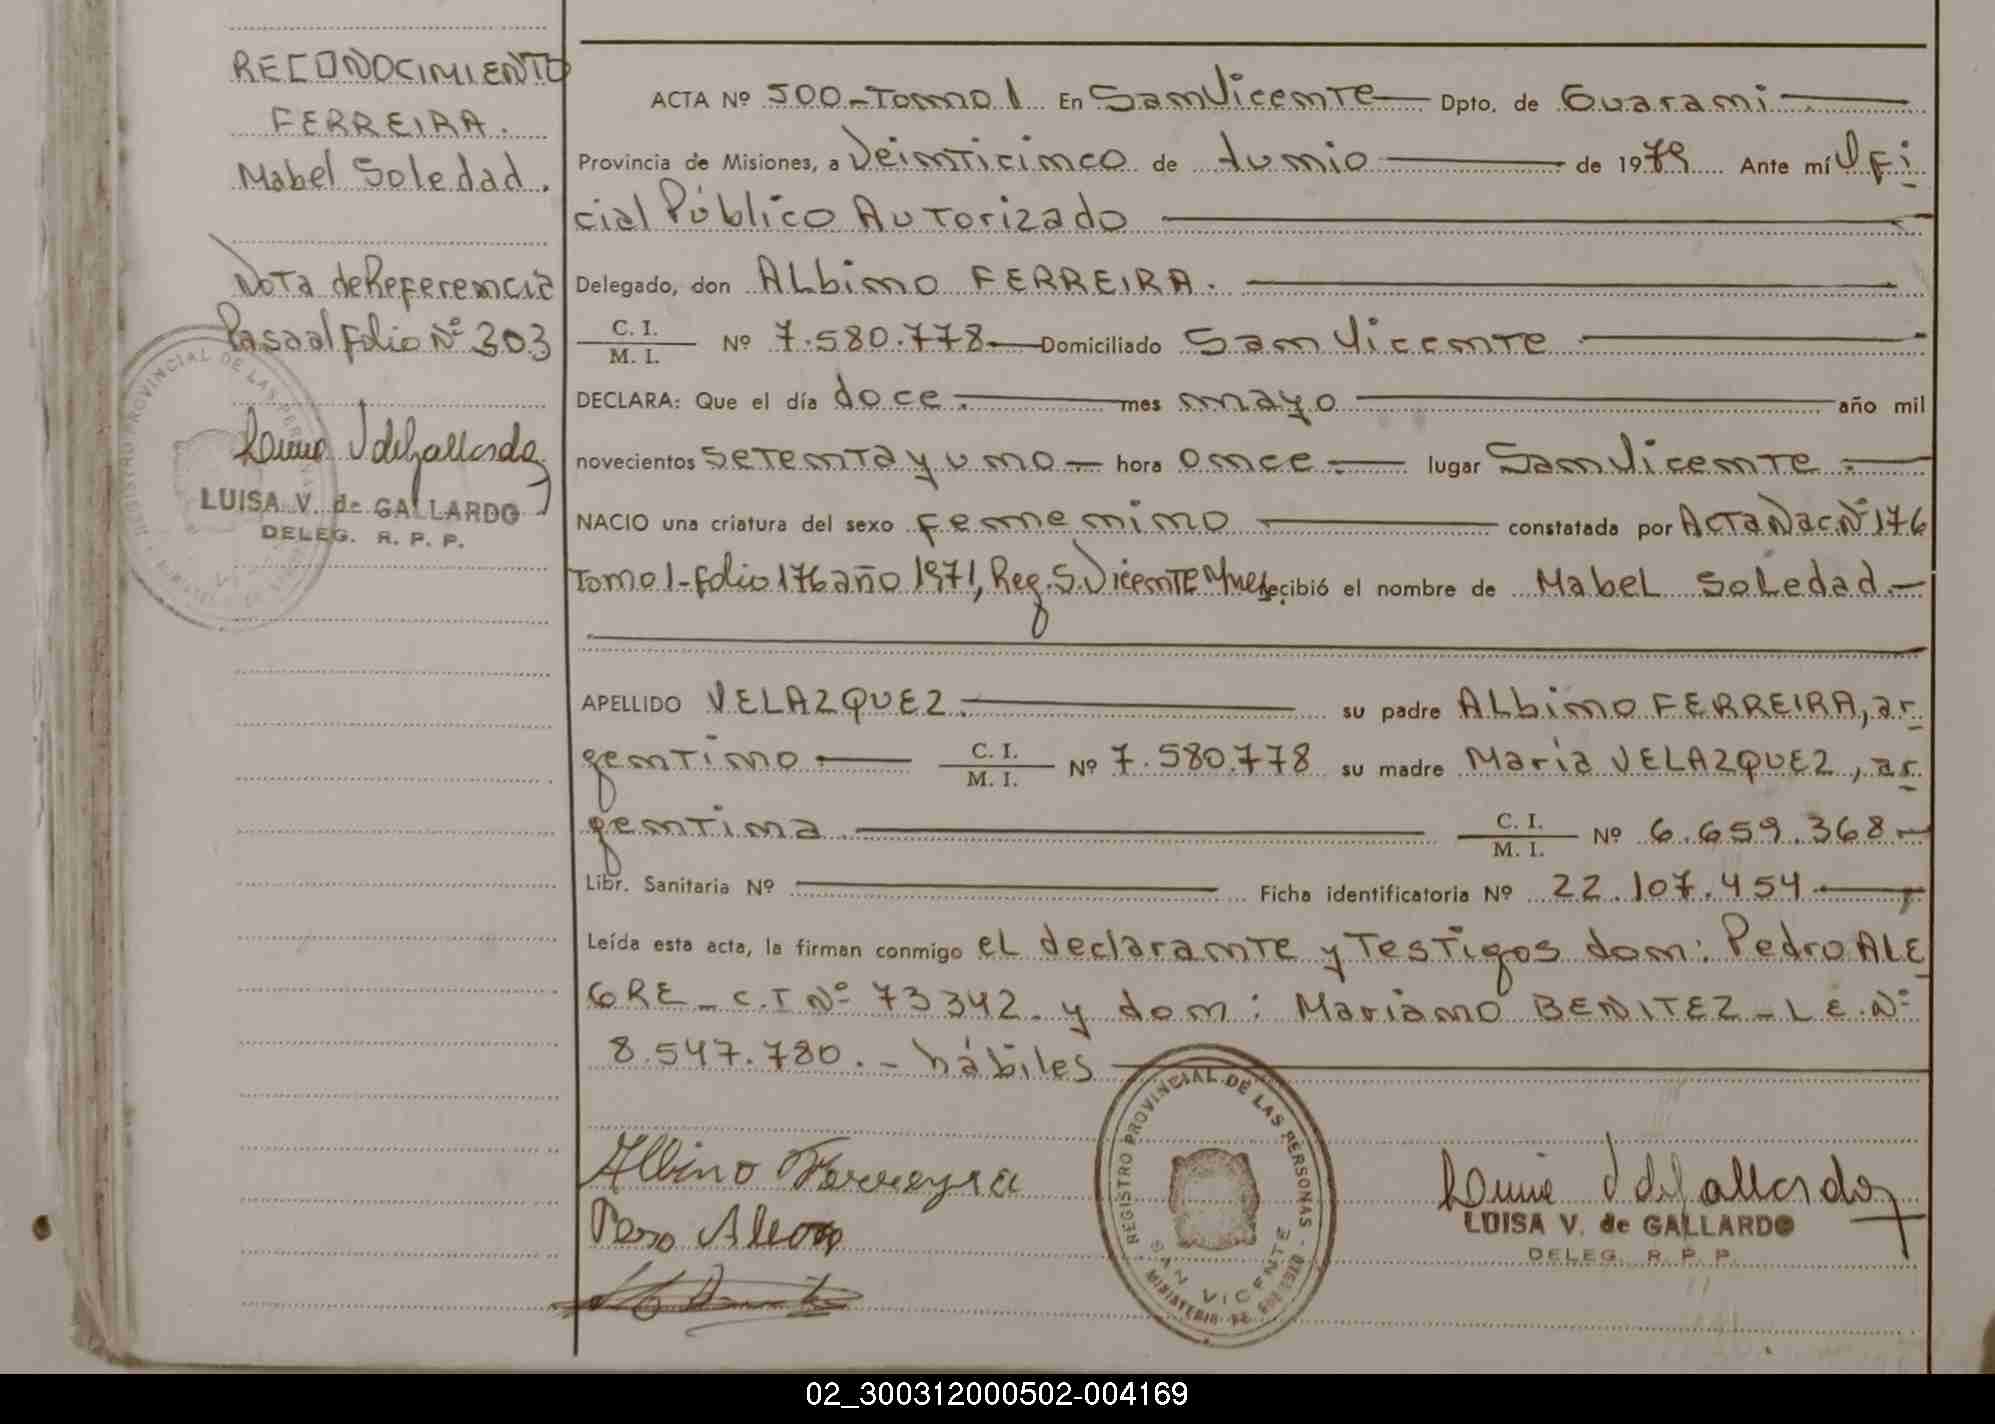 RECONOCIMIENTO
FERREIRA.
Mabel Soledad.
Nota de Referencia
Pasa al folio Nº 303
REGISTRO PROVINCIAL DE LAS PERSONAS
LUISA V. de GALLARDO
DELEG. R. P. P.
ACTA Nº 500-Tomo 1 En San Vicente Dpto. de Guarani
Provincia de Misiones, a Veinticinco de Junio de 1979 Ante mí Ofi
cial Público Autorizado
Delegado, don Albino FERREIRA.
C. I.
M. I. Nº 7.580.778 Domiciliado San Vicente
DECLARA: Que el día doce. mes mayo año mil
novecientos setenta y uno hora once lugar San Vicente
NACIO una criatura del sexo femenino constatada por Acta Nac. Nº 176
Tomo 1-folio 176 año 1971, Reg. S. Vicente recibió el nombre de Mabel Soledad.-
APELLIDO VELAZQUEZ. su padre Albino FERREIRA, ar
gentino C. I.
M. I. Nº 7.580.778 su madre Maria VELAZQUEZ, ar
gentina C. I.
M. I. Nº 6.659.368
Libr. Sanitaria Nº Ficha identificatoria Nº 22.107.454
Leída esta acta, la firman conmigo el declarante y Testigos don: Pedro ALE
GRE - C.I Nº 73342. y don: Mariano BENITEZ - L.E. Nº
8.547.780. - hábiles
Albino Ferreyra
REGISTRO PROVINCIAL DE LAS PERSONAS
SAN VICENTE
MINISTERIO DE GOBIERNO
LUISA V. de GALLARDO
DELEG. R. P. P.
02_300312000502-004169